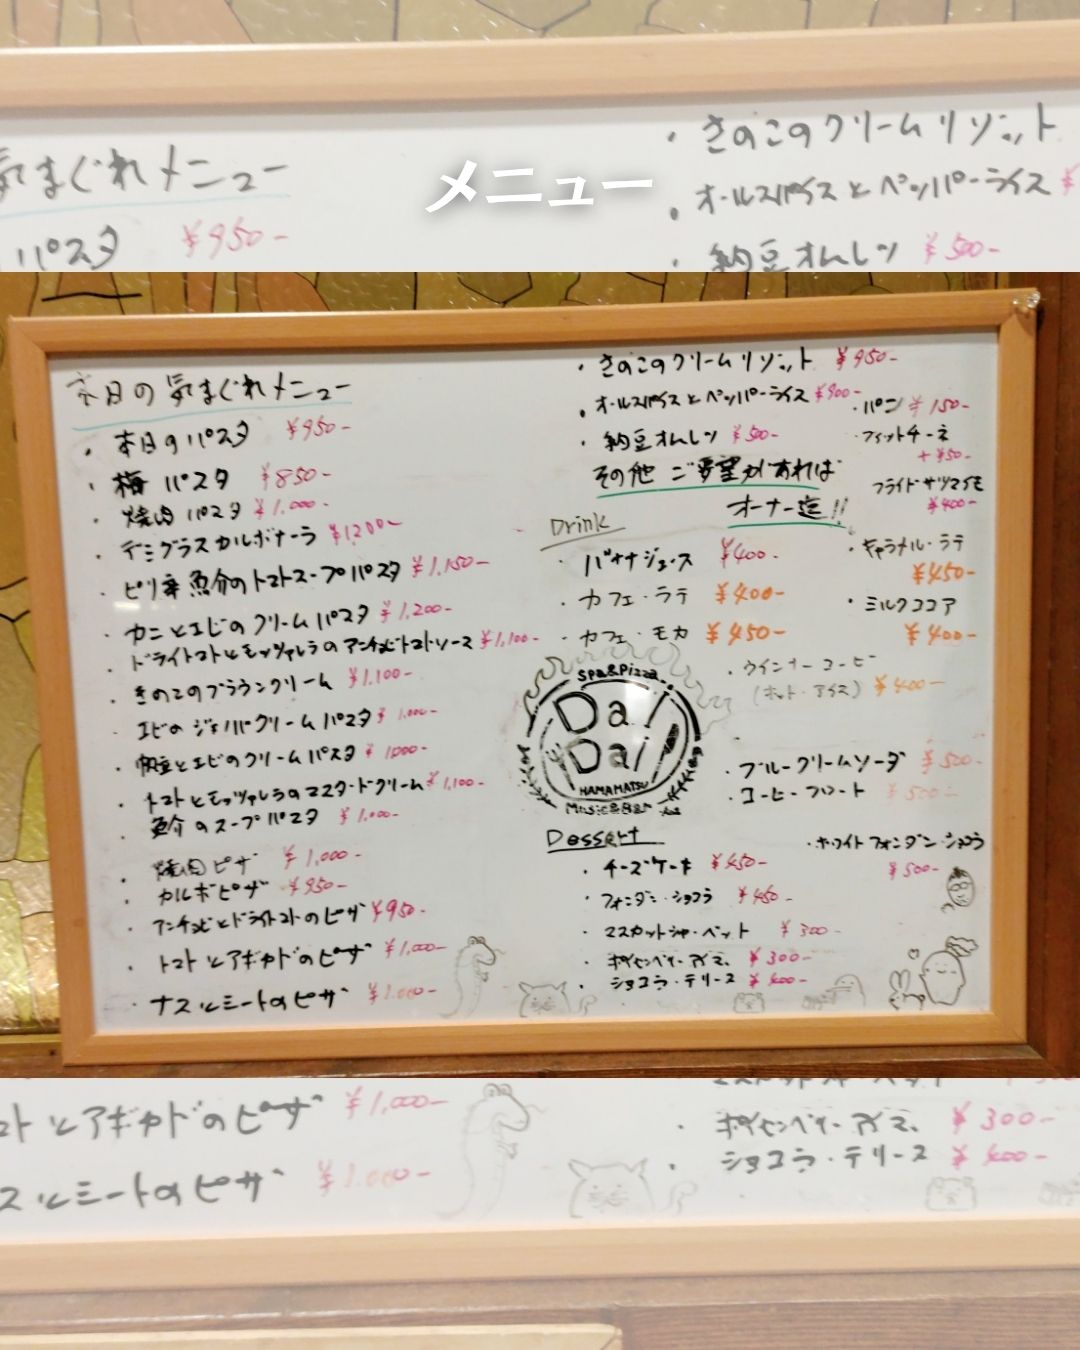 気まぐれメニュー
パスタ ¥950-
メニュー
・きのこのクリームリゾット
・オールスパイスとペッパーライス ¥
・納豆オムレツ ¥500-
本日の気まぐれメニュー
・本日のパスタ ¥950-
・梅パスタ ¥850-
・焼肉パスタ ¥1.000-
・デミグラスカルボナーラ ¥1200-
・ピリ辛魚介のトマトスープパスタ ¥1,150-
・カニとエビのクリームパスタ ¥1,200-
・ドライトマトとモッツァレラのアンチョビトマトソース ¥1,100-
・きのこのブラウンクリーム ¥1.100-
・エビのジェノバクリームパスタ ¥1.000-
・帆立とエビのクリームパスタ ¥1000-
・トマトとモッツァレラのマスタードクリーム ¥1,100-
・魚介のスープパスタ ¥1.000-
・焼肉ピザ ¥1,000-
・カルボピザ ¥950-
・アンチョビとドライトマトのピザ ¥950-
・トマトとアボカドのピザ ¥1,000-
・ナスとミートのピザ ¥1.000-
・きのこのクリームリゾット ¥950-
・オールスパイスとペッパーライス ¥900-
・納豆オムレツ ¥500-
その他ご要望があれば
オーナー迄!!
・パン ¥150-
・フィットチーネ
+¥50-
フライドサツマイモ
¥400-
Drink
・バナナジュース ¥400-
・カフェ・ラテ ¥400-
・カフェ・モカ ¥450-
・キャラメル・ラテ
¥450-
・ミルクココア
¥400-
・ウインナーコーヒー
(ホット・アイス) ¥400-
・ブルークリームソーダ ¥500-
・コーヒーフロート ¥500-
Spa&Pizza
Dai
Dai
HAMAMATSU
Music&Bar
Dessert
・チーズケーキ ¥450-
・フォンダン・ショコラ ¥450-
・マスカットシャーベット ¥300-
・ボイセンベリーアイス ¥300-
・ショコラ・テリーヌ ¥400-
・ホワイトフォンダン・ショコラ
¥500-
トとアボカドのピザ ¥1,000-
スとミートのピザ ¥1.000-
・ボイセンベリーアイス ¥300-
・ショコラ・テリーヌ ¥400-